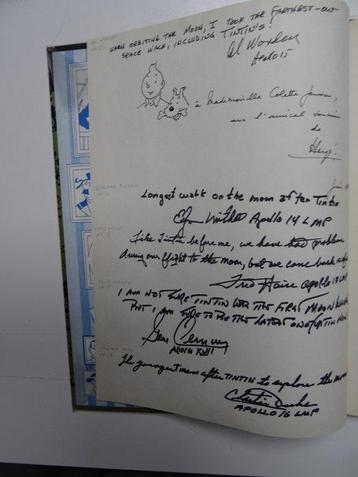 WHEN ORBITING THE MOON, I TOOK THE FARTHEST-OUT
SPACE WALK, INCLUDING TINTIN'S!
Al Worden
Apollo 15
à Mademoiselle Colette
de
Hergé
Longest walk on the moon after Tintin
Apollo 14 LMP
Like Tintin before me, we have had problem
during our flight to the moon, but we came back
Fred Haise Apollo 13
I AM NOT SURE TINTIN WAS THE FIRST MOON
BUT I AM SURE TO BE THE LATEST ONE
Gene Cernan
Apollo XVII
The youngest man after TINTIN to explore the moon
Charlie Duke
APOLLO 16 LMP